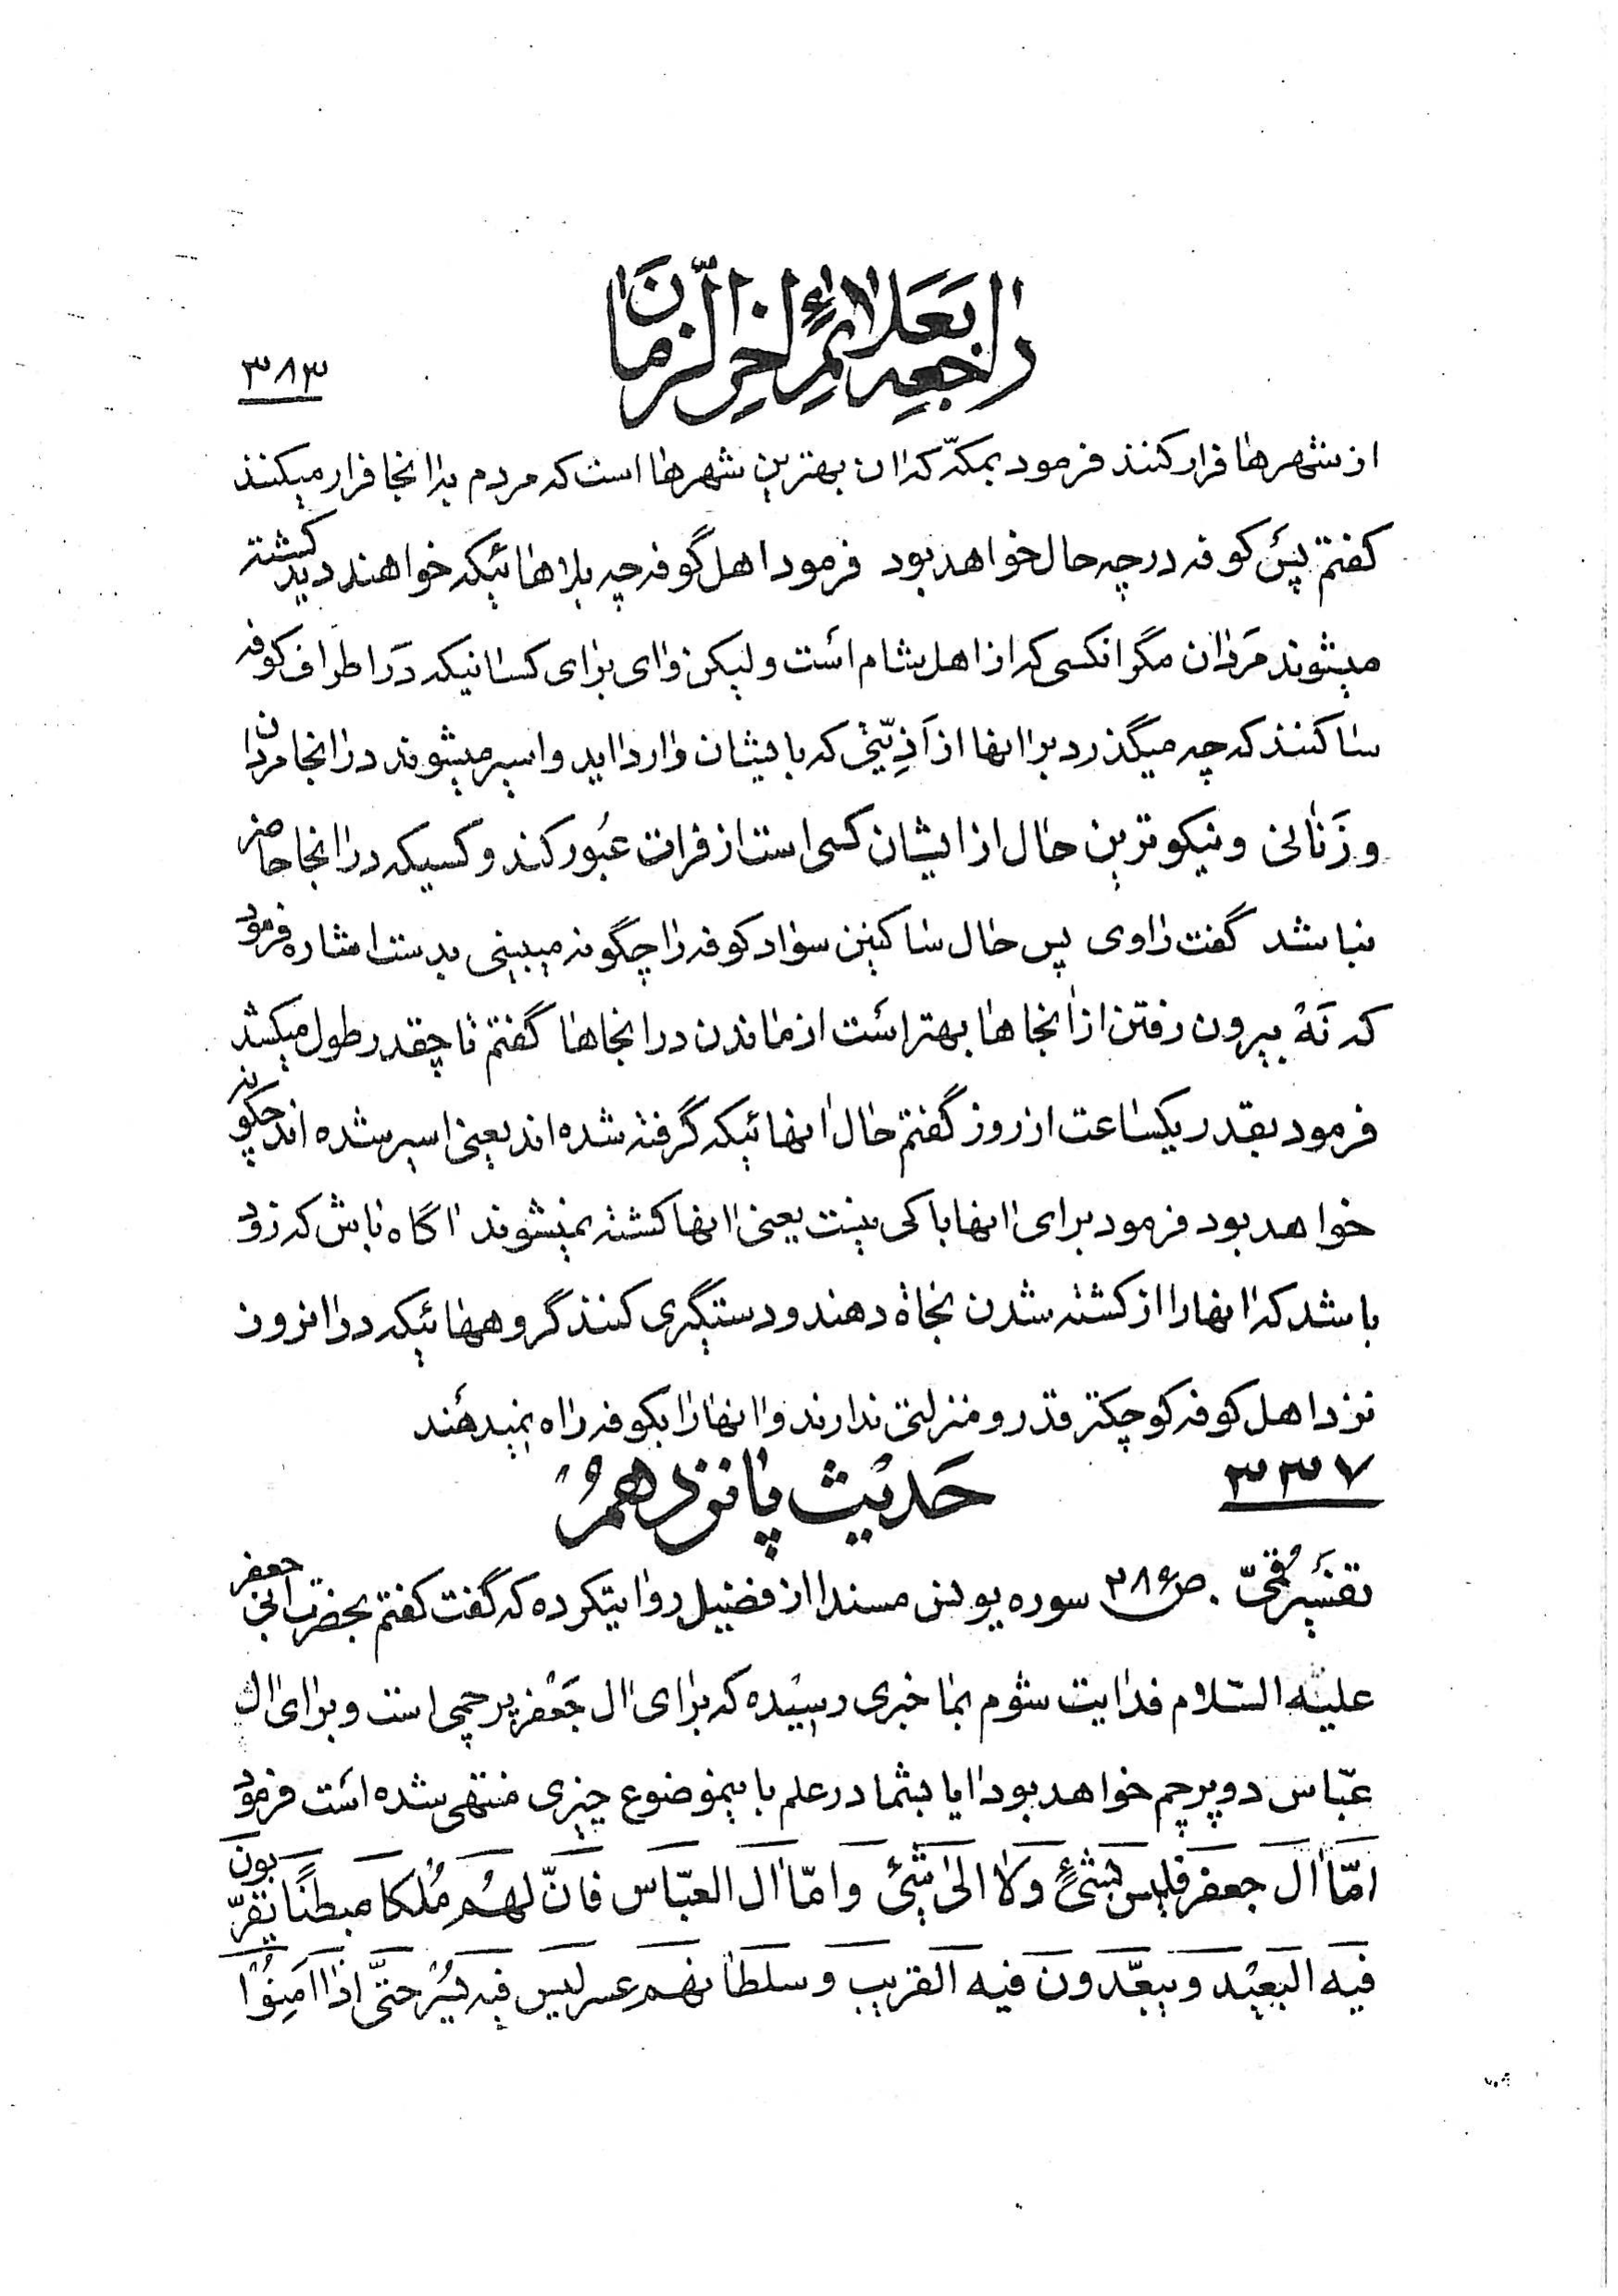 راجعه بعلائم اخر الزمان
۳۸۳
از شهرها فرار کنند فرمود بمکّه که ان بهترین شهرها است که مردم بدانجا فرار میکنند
کفتم پس کوفه در چه حال خواهد بود فرمود اهل گوفه چه بلاهائیکه خواهند دید کشته
میشوند مردان مگر انکسی که از اهل شام است و لیکن وای برای کسانیکه در اطراف کوفه
ساکنند که چه میگذرد برانها از اذیّتی که بایشان وارد اید و اسیر میشوند در انجا مردان
و زنانی و نیکوترین حال از ایشان کسی است از فرات عبُور کند و کسیکه در انجا حاضر
نباشد گفت راوی پس حال ساکنین سواد کوفه را چگونه میبینی بدست اشاره فرمود
که نَهْ بیرون رفتن از انجاها بهتر است از ماندن در انجاها گفتم تا چقدر طول میکشد
فرمود بقدر یکساعت از روز گفتم حال انهائیکه گرفته شده اند یعنی اسیر شده اند چکونه
خواهد بود فرمود برای انها باکی نیست یعنی انها کشته نمیشوند اگاه باش که زود
باشد که انها را از کشته شدن نجاة دهند و دستگیری کنند گروههائیکه در انروز
نزد اهل کوفه کوچکتر قدر و منزلتی ندارند و انها را بکوفه راه نمیدهند
۳۳۷
حَدیْث پانزدهمْ
تفسیر قمیّ ص۲۸۶ سوره یونس مسندا از فضیل روایتکرده که گفت کفتم بحضرت ابی جعفر
علیه السّلام فدایت شوم بما خبری رسیْده که برای ال جَعْفر پرچمی است و برای ال
عبّاس دو پرچم خواهد بود ایا بشما در علم باینموضوع چیزی منتهی شده است فرمود
امّا ال جعفر فلیس بشیءٍ وَلا الی شیء وَامّا ال العبّاس فانّ لهُم مُلکا مبطئًا یقرّبون
فیه البَعیْد و یبعّدون فیه القریب و سلطانهم عسر لیس فیه یُسْر حتَّی اذا اَمِنُوْا